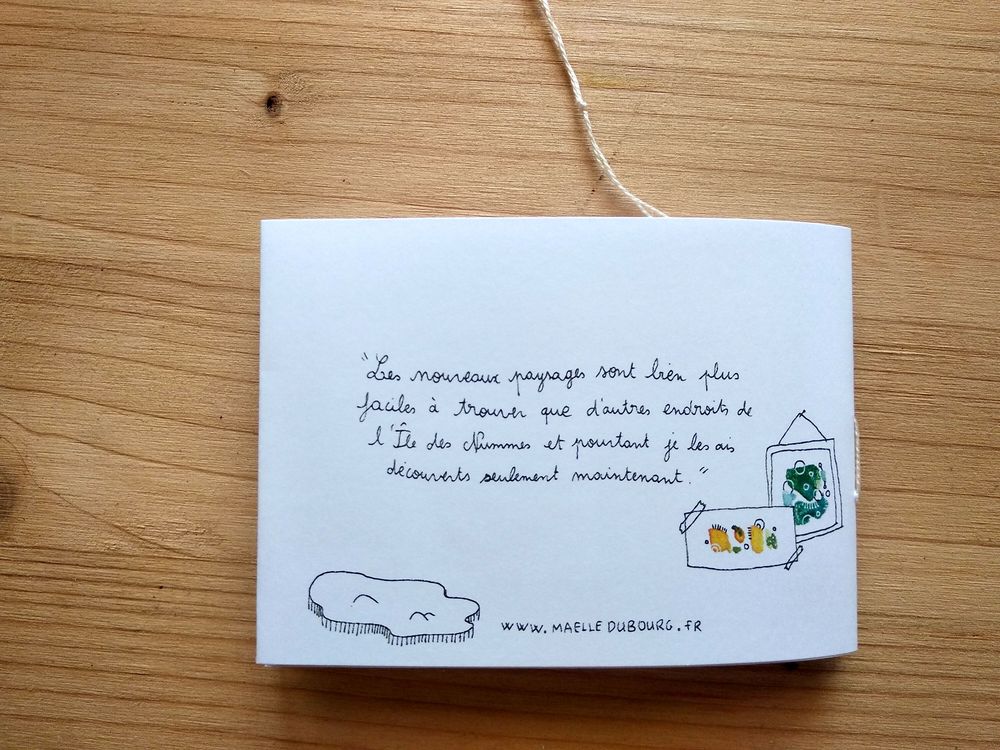 "Les nouveaux paysages sont bien plus
faciles à trouver que d'autres endroits de
l'Île des Nummes et pourtant je les ais
découverts seulement maintenant."
WWW.MAELLEDUBOURG.FR